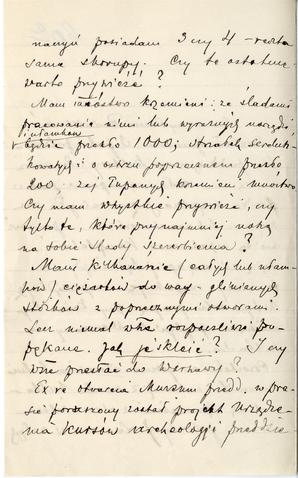 naczyń posiadam 3 czy 4 - reszta
same skorupy. Czy te ostatnie
warto przywieźć?
Mam mnóstwo krzemieni: ze śladami
pracowania nimi lub wyraźnych narzędzi
i ułamków
będzie przeszło 1000; strzałek sercuk-
kowatych i o ostrzu poprzecznem przeszło
200; zaś łupanych krzemieni mnóstwo
Czy mam wszystkie przywieźć, czy
tylko te, które przynajmniej noszą
na sobie ślady szczerbienia?
Mam kilkanaście (całych lub ułam-
ków) ciężarków do wag - glinianych
stożków z poprzecznymi otworami.
Lecz niemal wszystkie popękane.
Jak je skleić? I czy
przesłać do Warszawy?
Ex re otwarcia Muzeum przedd. w pra-
sie poruszony został projekt urządze-
nia kursów archeologji przeddzie-